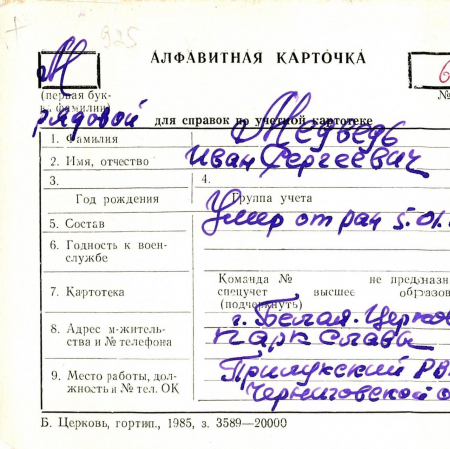 925
АЛФАВИТНАЯ КАРТОЧКА
М
6
(первая бук-
ва фамилии)
№
рядовой
для справок по учетной картотеке
1. Фамилия
Медведь
2. Имя, отчество
Иван Сергеевич
3.
4.
Год рождения
Группа учета
5. Состав
Умер от ран 5.01.
6. Годность к воен-
службе
7. Картотека
Команда № не предназн
спецучет высшее образов
(подчеркнуть)
8. Адрес м-житель-
ства и № телефона
г. Белая-Церков
парк Славы
9. Место работы, дол-
жность и № тел. ОК
Прилукский РВ
Черниговской о
Б. Церковь, гортип., 1985, з. 3589—20000